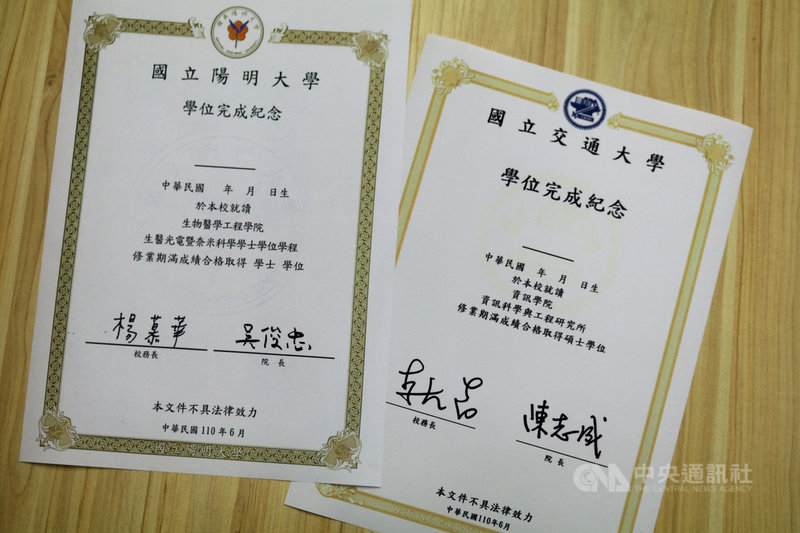 國立陽明大學
學位完成紀念
中華民國 年 月 日生
於本校就讀
生物醫學工程學院
生醫光電暨奈米科學學士學位學程
修業期滿成績合格取得 學士 學位
楊慕華 吳俊忠
校務長 院 長
本文件不具法律效力
中華民國 110 年 6 月
國立陽明大學
國立交通大學
學位完成紀念
中華民國 年 月 日生
於本校就讀
資訊學院
資訊科學與工程研究所
修業期滿成績合格取得碩士學位
陳志成
校務長
院 長
本文件不具法律效力
中華民國110年6月
中央通訊社
THE CENTRAL NEWS AGENCY